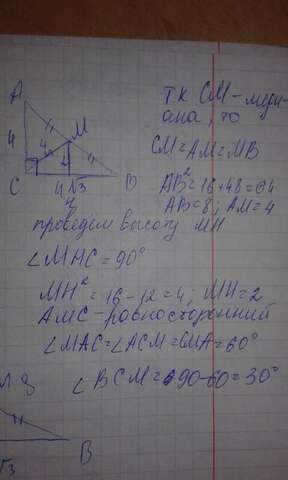 A
4
4
M
2
C
4√3
H
B
т.к CM - меди-
ана, то
CM=AM=MB
AB²=16+48=64
AB=8; AM=4
проведем высоту MH
∠MHC=90°
MH²=16-12=4; MH=2
AMC - равносторонний
∠MAC=∠ACM=CMA=60°
∠BCM=90-60=30°
B
√3